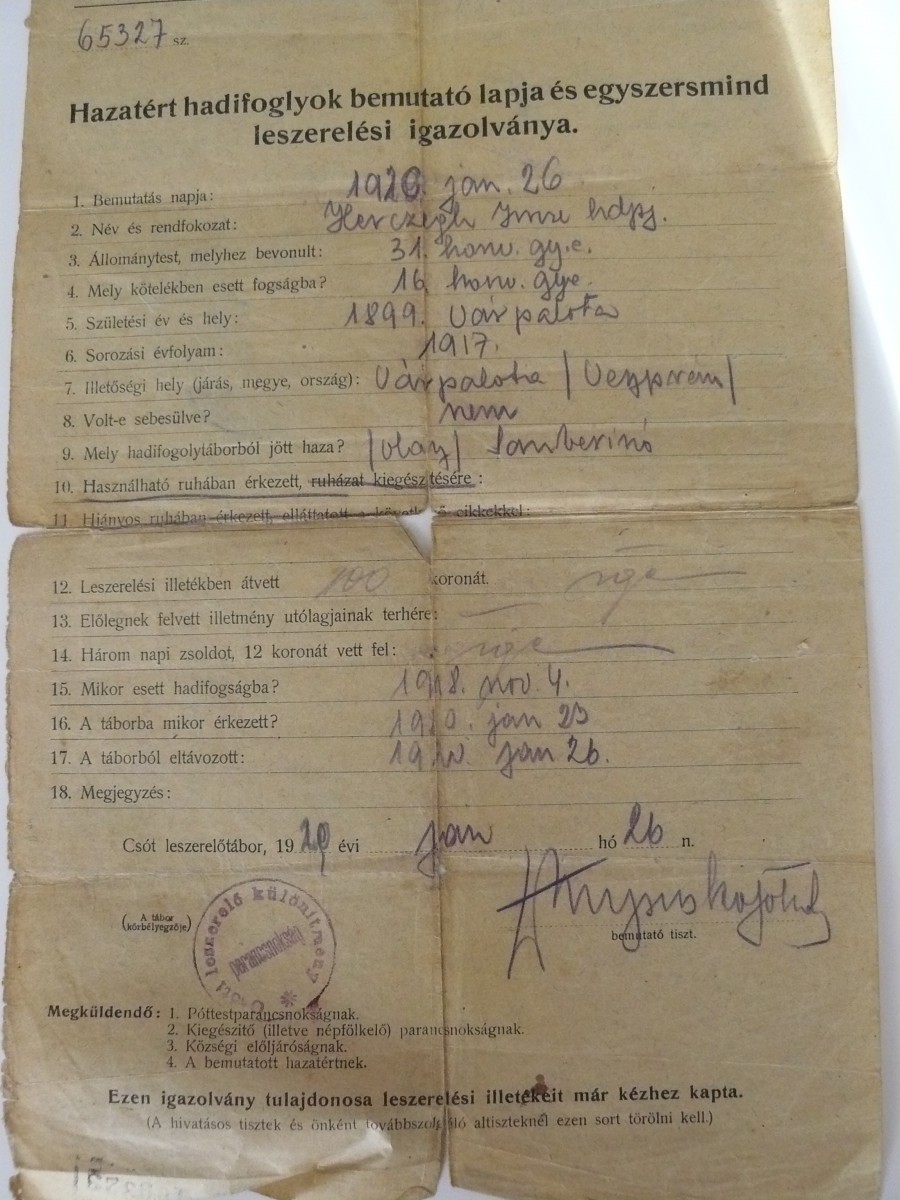 65327 sz.
Hazatért hadifoglyok bemutató lapja és egyszersmind
leszerelési igazolványa.
1. Bemutatás napja: 1920. jan. 26
2. Név és rendfokozat: Herczegh Imre hdpj.
3. Állománytest, melyhez bevonult: 31. honv. gy.e.
4. Mely kötelékben esett fogságba? 16 honv. gye.
5. Születési év és hely: 1899. Várpalota
6. Sorozási évfolyam: 1917.
7. Illetőségi hely (járás, megye, ország): Várpalota / Veszprém /
8. Volt-e sebesülve? nem
9. Mely hadifogolytáborból jött haza? /olasz/
10. Használható ruhában érkezett, ruházat kiegésztésére:
11. Hiányos ruhában érkezett, elláttatott a követ ő cikkekkel:
12. Leszerelési illetékben átvett 100 koronát.
13. Előlegnek felvett illetmény utólagjainak terhére: —
14. Három napi zsoldot, 12 koronát vett fel:
15. Mikor esett hadifogságba? 1918. nov. 4.
16. A táborba mikor érkezett? 1920. jan 23
17. A táborból eltávozott: 1920. jan 26.
18. Megjegyzés:
Csót leszerelőtábor, 1920 évi jan hó 26 n.
(A tábor körbélyegzője)
leszerelő különítmény
parancsnokság
bemutató tiszt.
Megküldendő: 1. Póttestparancsnokságnak.
2. Kiegészitő (illetve népfölkelő) parancsnokságnak.
3. Községi előljáróságnak.
4. A bemutatott hazatértnek.
Ezen igazolvány tulajdonosa leszerelési illetékeit már kézhez kapta.
(A hivatásos tisztek és önként továbbszolgáló altiszteknél ezen sort törölni kell.)